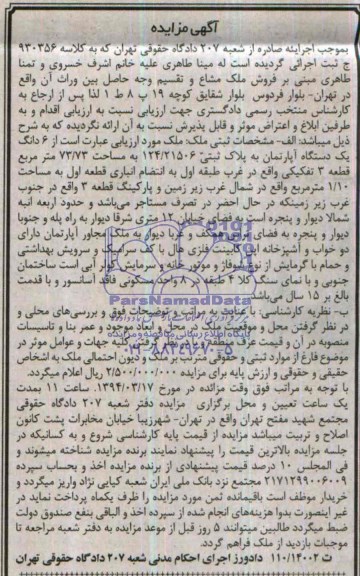 آگهی مزایده
بموجب اجرائیه صادره از شعبه ۲۰۷ دادگاه حقوقی تهران که به کلاسه ۹۳۰۳۵۶
ج ثبت اجرائی گردیده است له مینا طاهری علیه خانم اشرف خسروی و تمنا
طاهری مبنی بر فروش ملک مشاع و تقسیم وجه حاصل بین وراث آن واقع
در تهران- بلوار فردوس بلوار شقایق کوچه ۱۹ پ ۸ ط ۱ لذا پس از ارجاع به
کارشناس منتخب رسمی دادگستری جهت ارزیابی نسبت به ارزیابی اقدام و به
طرفین ابلاغ و اعتراض موثر و قابل پذیرش نسبت به آن ارائه نگردیده که به شرح
ذیل میباشد: الف- مشخصات ثبتی ملک: ملک مورد ارزیابی عبارت است از ۶ دانگ
یک دستگاه آپارتمان به پلاک ثبتی ۱۲۴/۲۱۵۰۶ به مساحت ۷۳/۷۳ متر مربع
قطعه ۳ تفکیکی واقع در غرب طبقه اول به انضمام انباری قطعه اول به مساحت
۱/۱۰ مترمربع واقع در شمال غرب زیر زمین و پارکینگ قطعه ۳ واقع در جنوب
غرب زیر زمینکه در حال حاضر در تصرف مستاجر می‌باشد و حدود اربعه انبه
شمالا دیوار و پنجره است به فضای خیابان ۱۰ متری شرقا دیوار به راه پله و جنوبا
دیوار و پنجره به فضای و غربا دیوار به ملک مجاور آپارتمان دارای
دو خواب و آشپزخانه اپن کابینت فلزی هال با کف سرامیک و سرویس بهداشتی
و حمام با گرمایش از نوع شوفاژ و موتور خانه و سرمایش کولر آبی است ساختمان
جنوبی و با نمای سنگ کلا ۴ طبقه در ۸ واحد مسکونی فاقد آسانسور و با قدمت
بالغ بر ۱۵ سال می‌باشد
ب- نظریه کارشناسی: با عنایت به مراتب و توضیحات فوق و بررسی‌های محلی و
در نظر گرفتن محل و موقعیت ملک در محل و ابعاد موجود و عمر بنا و تاسیسات
منصوبه در آن و قیمت عرف منطقه با در نظر گرفتن کلیه جهات و عوامل موثر در
موضوع فارغ از موارد ثبتی و حقوقی مترتب بر ملک و دیون احتمالی ملک به اشخاص
حقیقی و حقوقی و ارزش پایه برای مزایده ۲/۵۰۰/۰۰۰/۰۰۰ ریال اعلام میگردد.
با توجه به مراتب فوق وقت مزائده در مورخ ۱۳۹۴/۰۳/۱۷ ساعت ۱۱ بمدت
یک ساعت تعیین و محل برگزاری مزایده دفتر شعبه ۲۰۷ دادگاه حقوقی
مجتمع شهید مفتح تهران واقع در تهران- شهرزیبا خیابان مخابرات پشت کانون
اصلاح و تربیت میباشد مزایده از قیمت پایه کارشناسی شروع و به کسانیکه در
جلسه مزایده بالاترین قیمت را پیشنهاد نمایند برنده مزایده شناخته میشوند و
فی المجلس ۱۰ درصد قیمت پیشنهادی از برنده مزایده اخذ و بحساب سپرده
۲۱۷۱۲۹۹۰۰۶۰۰۹ مجتمع نزد بانک ملی ایران شعبه کیایی نژاد واریز میگردد و
خریدار موظف است باقیمانده ثمن مورد مزایده را ظرف یکماه پرداخت نماید در
غیر اینصورت بدوا هزینه‌های انجام شده از سپرده اخذ و الباقی بنفع صندوق دولت
ضبط میگردد طالبین میتوانند ۵ روز قبل از موعد مزایده به دفتر شعبه مراجعه تا
موجبات بازدید از ملک فراهم گردد.
ت ۱۱۰/۱۴۰۰۲ دادورز اجرای احکام مدنی شعبه ۲۰۷ دادگاه حقوقی تهران
ParsNamadData
۰۲۱-۸۸۳۴۹۶۷۰-۵